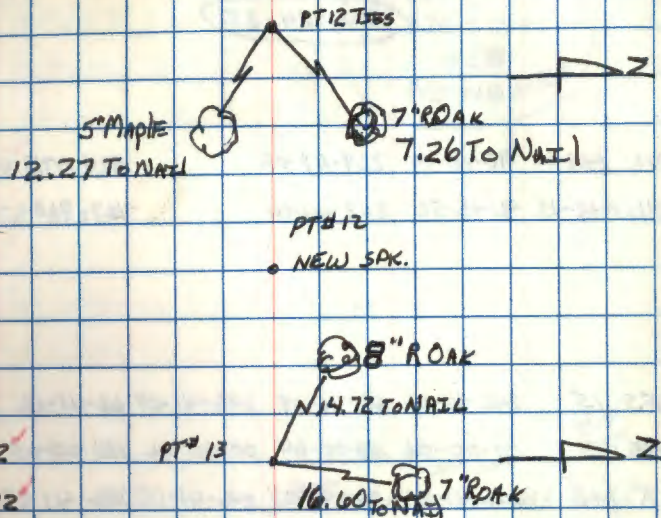 PT 12 TIES
N
5" MAPLE
12.27 TO NAIL
7" ROAK
7.26 TO NAIL
PT# 12
NEW SPK.
8" ROAK
14.72 TO NAIL
PT# 13
N
16.60 TO NAIL
7" ROAK
2
2